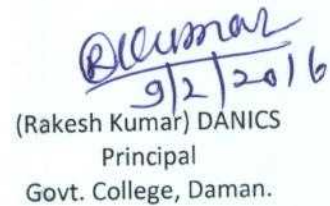 RKumar
9/2/2016
(Rakesh Kumar) DANICS
Principal
Govt. College, Daman.